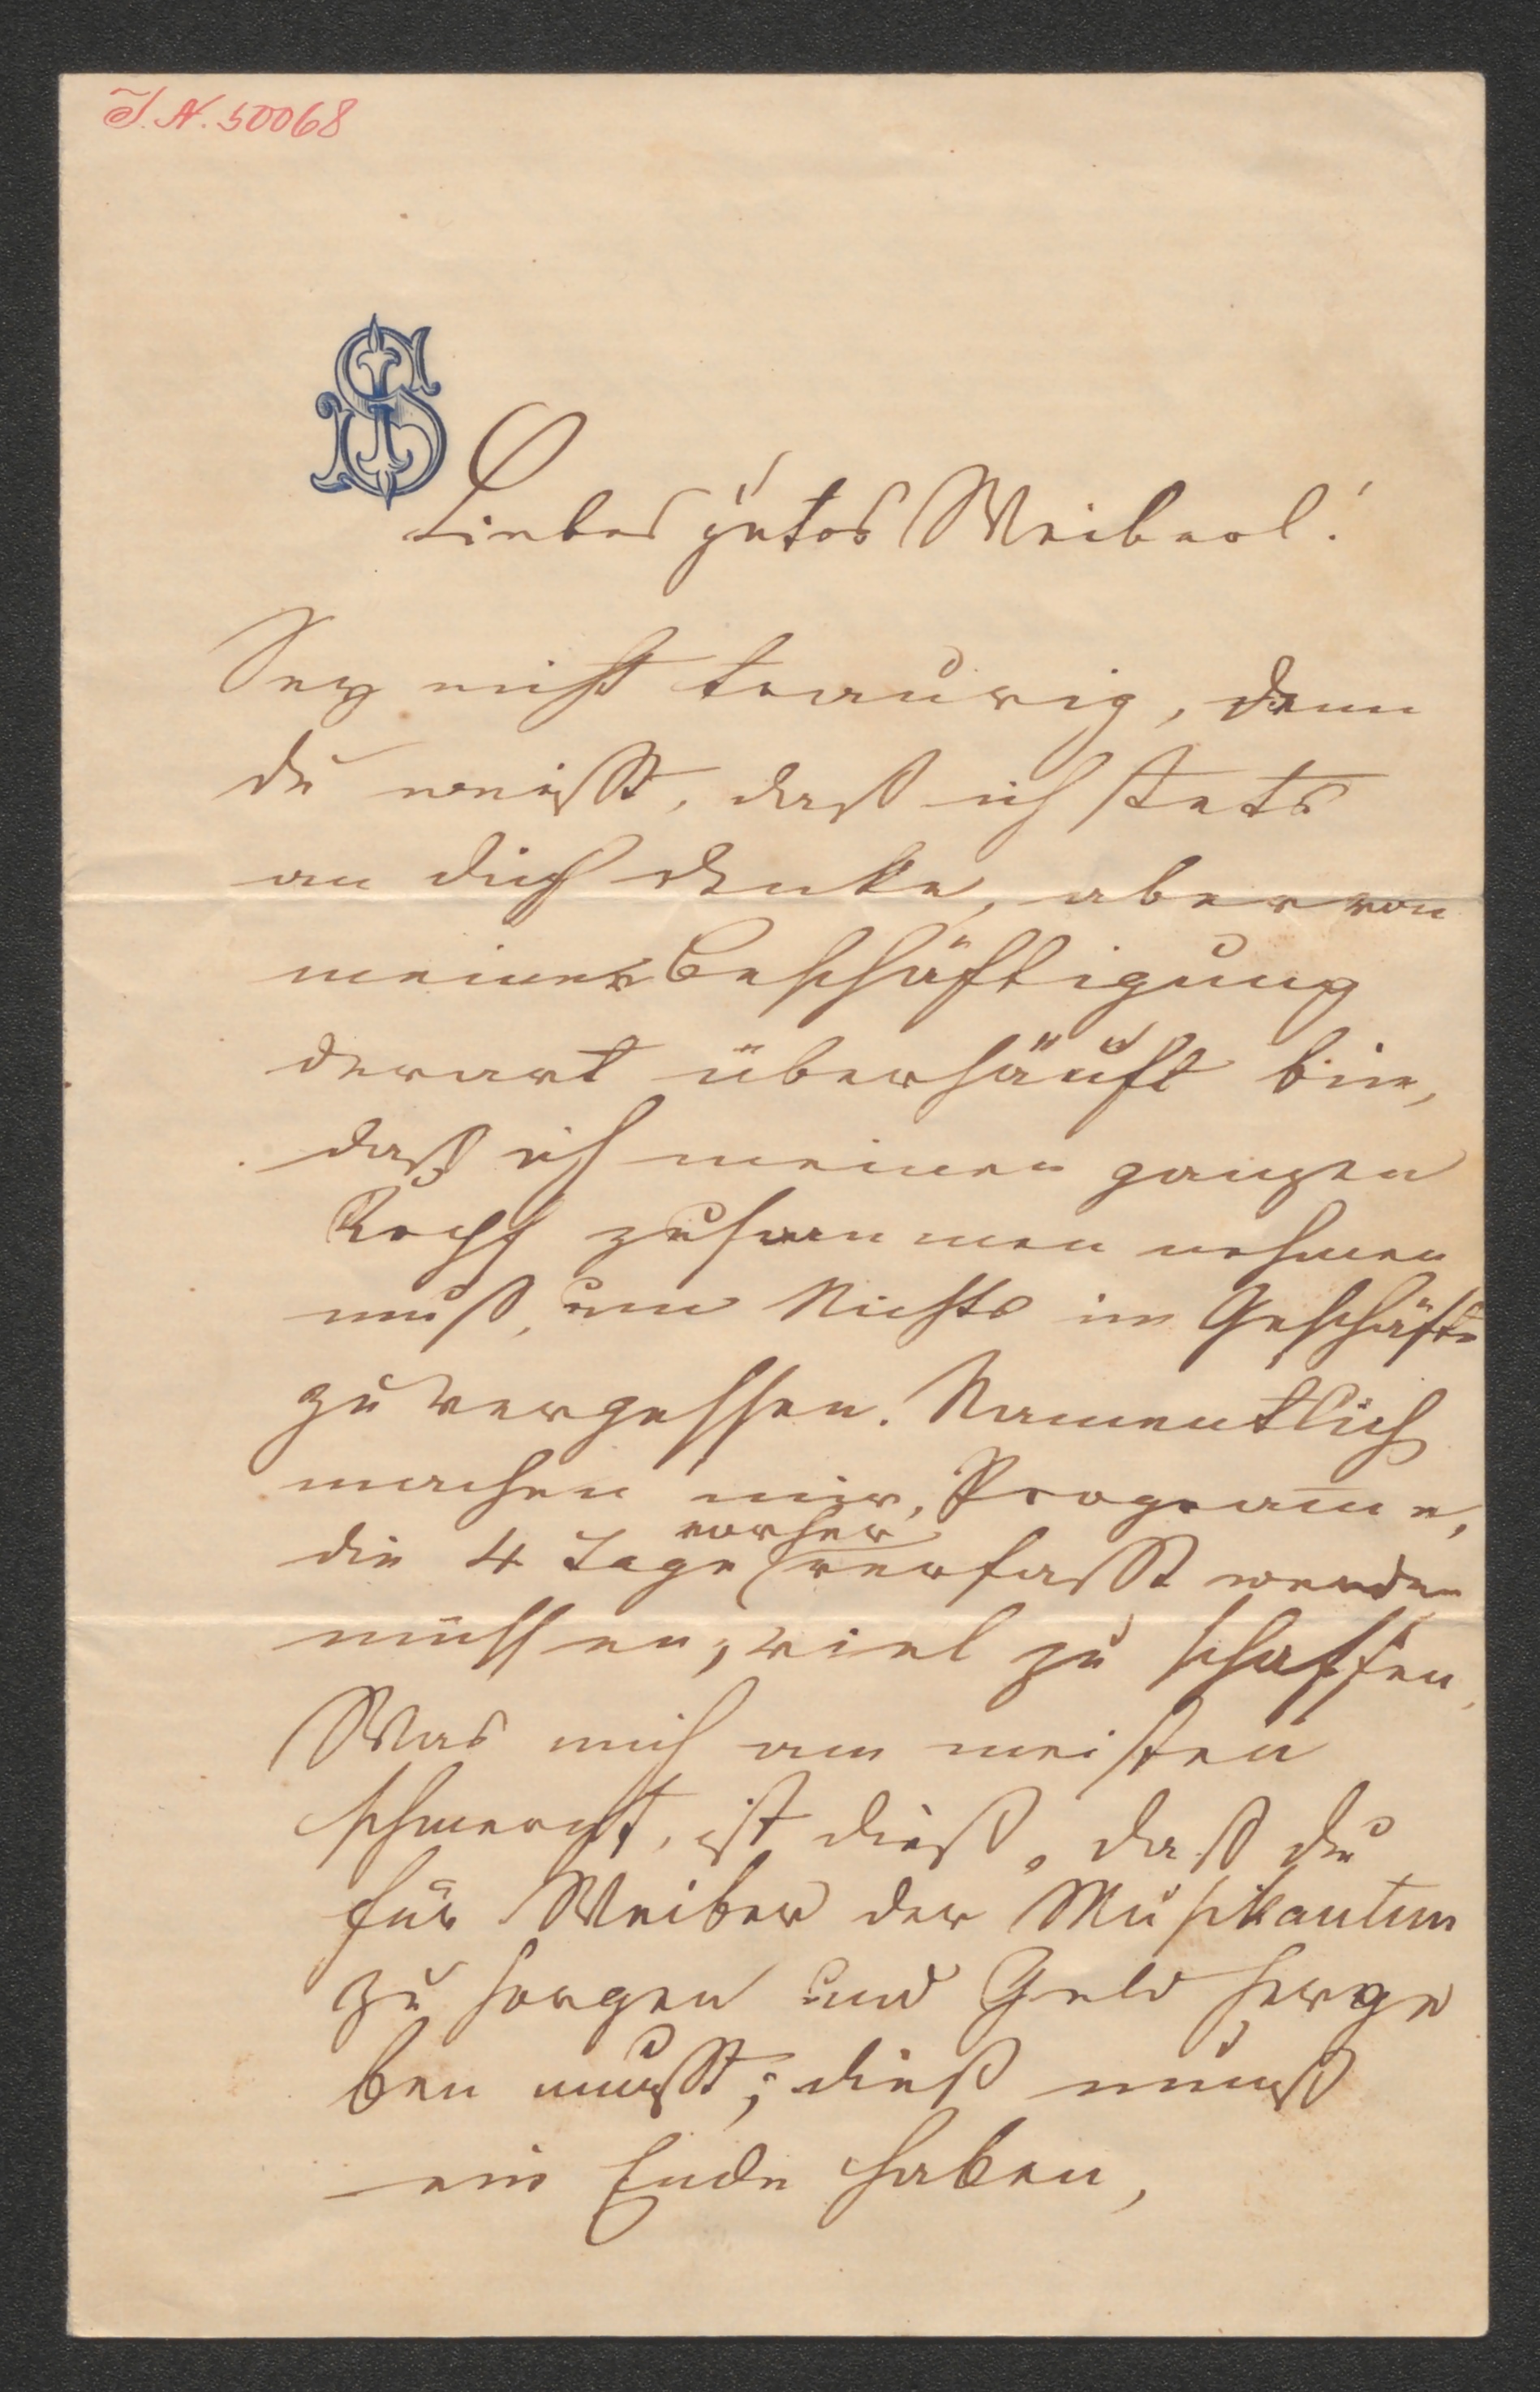 I. N. 50068
JS
Liebes gutes Weiberl!
Sey nicht traurig, denn
du weißt, daß ich stets
an dich denke, aber von
meiner Beschäftigung
derart überhäuft bin,
daß ich meinen ganzen
Kopf zusammen nehmen
muß, um Nichts im Geschäfte
zu vergessen. Namentlich
machen mir, Programe,
die 4 Tage vorher verfaßt werden
müssen, viel zu schaffen.
Was mich am meisten
schmerzt, ist dieß, daß du
für Weiber der Musikanten
zu sorgen und Geld herge
ben mußt; dieß muß
ein Ende haben,